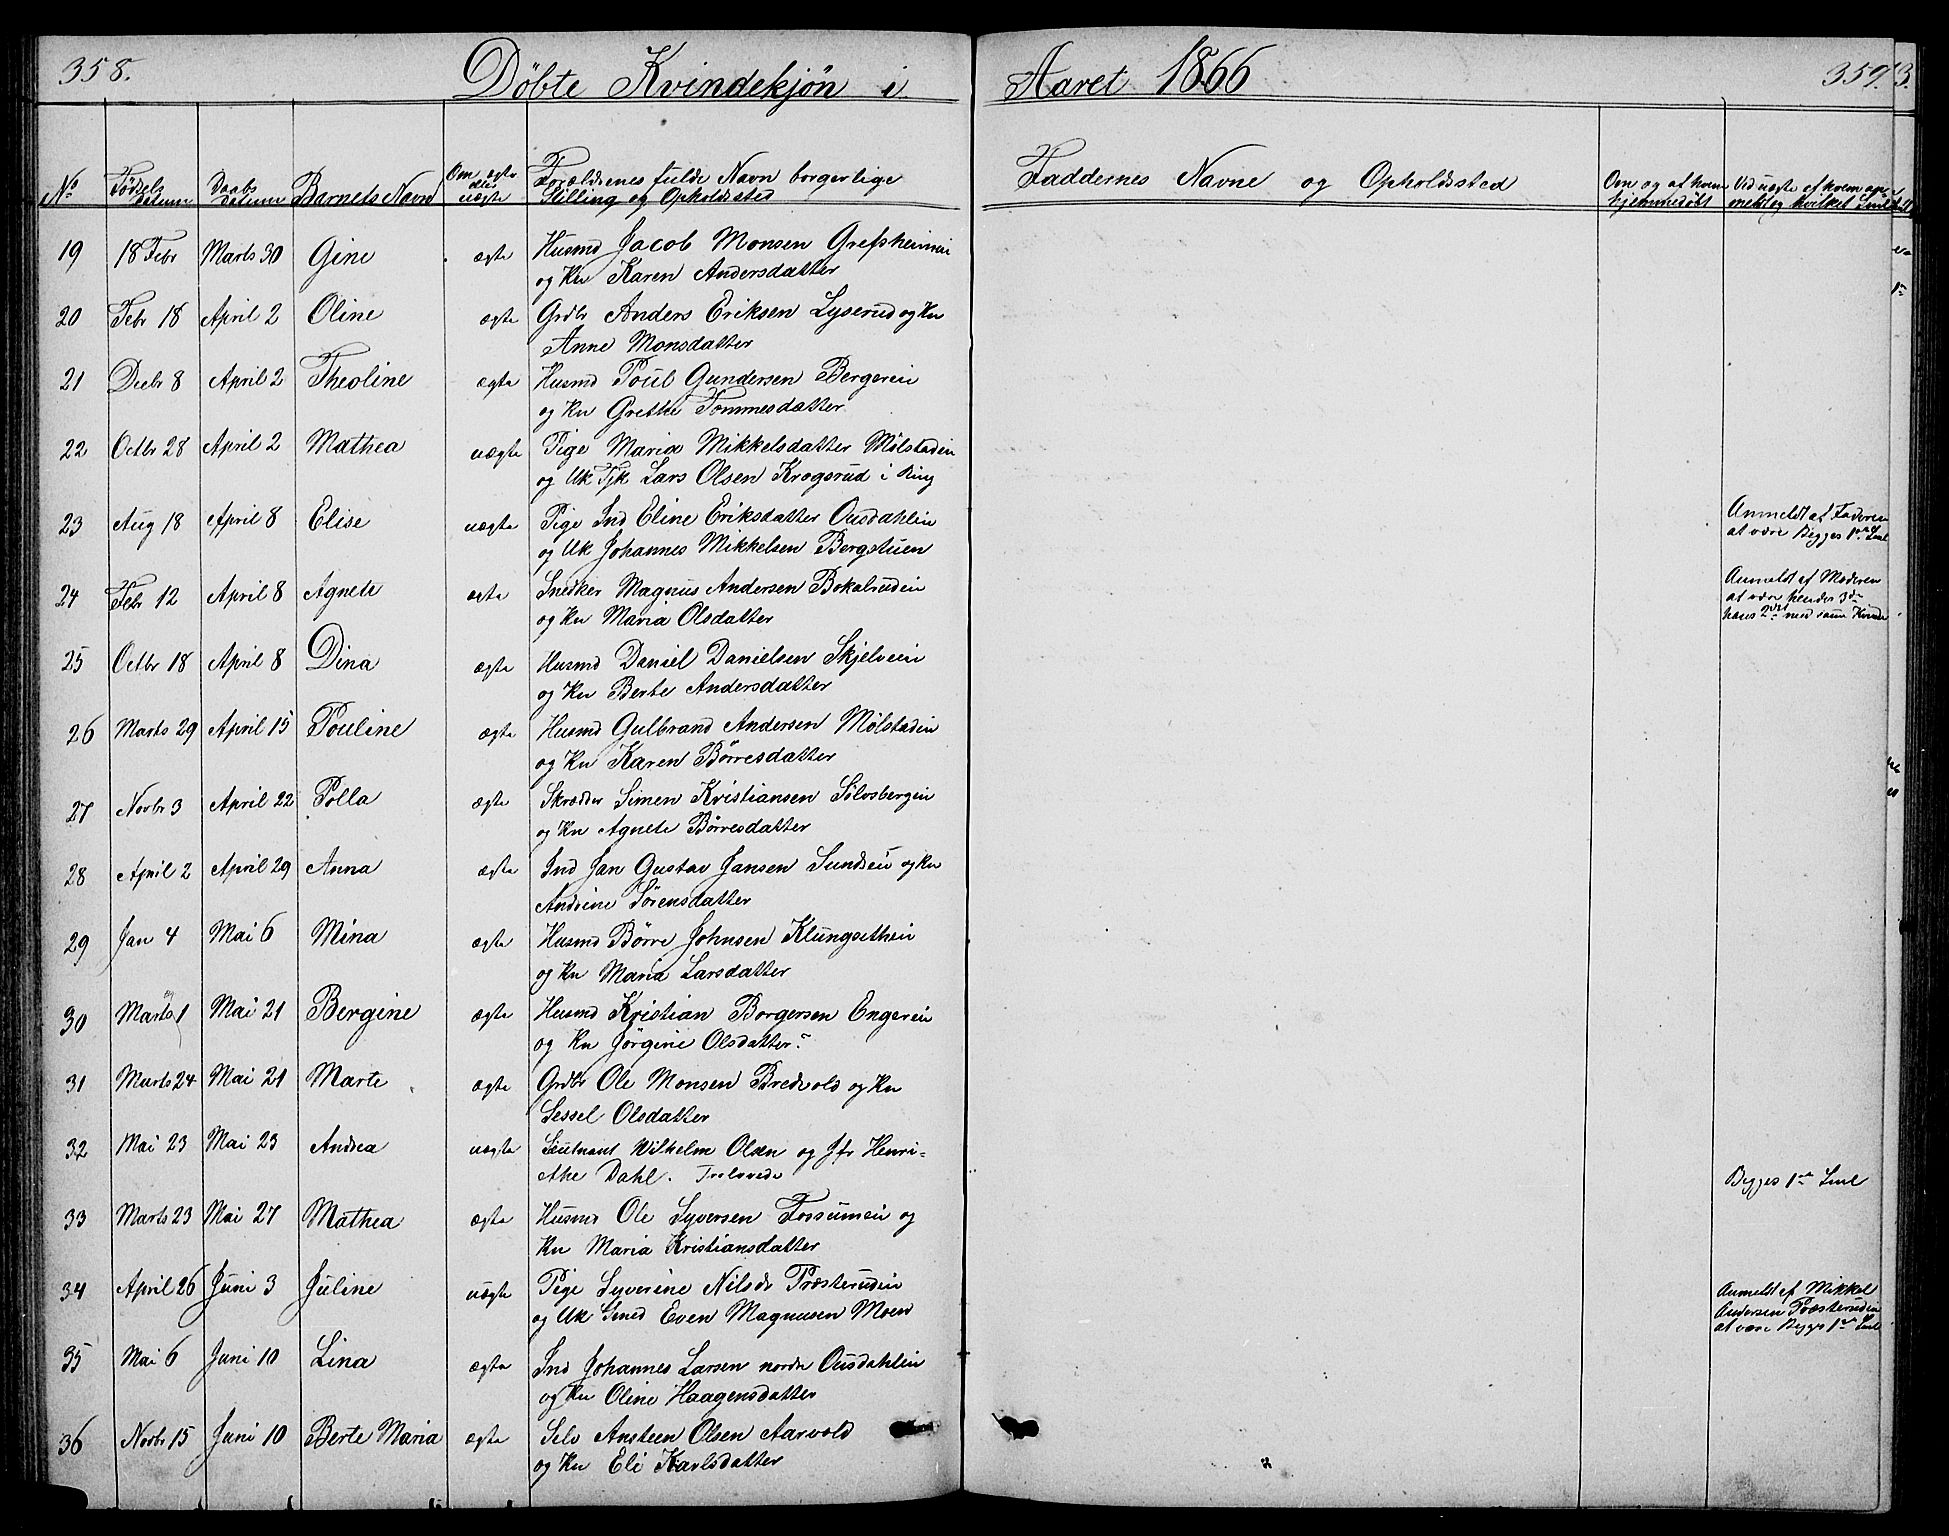 358.
Döbte Kvindekjøn i
Aaret 1866
359.
3.
No
Fødsels datum
Daabs datum
Barnets Navn
Om ægte eller uægte
Forældrenes fulde Navn borgerlige
Stilling og Opholdssted
Faddernes Navne og Opholdssted
Om og af hvem hjemmedøbt
Ved uægte af hvem anmeldt og hvilket
19 18 Febr Marts 30 Gine ægte Husmd Jacob Monsen Grefsheimei
og Kn Karen Andersdatter
20 Febr 18 April 2 Oline ægte Grdbr Anders Eriksen Lyserud og Kn
Anne Monsdatter
21 Decbr 8 April 2 Theoline ægte Husmd Poul Gundersen Bergerein
og Kn Grethe Tommesdatter
22 Octbr 28 April 2 Mathea uægte Pige Maria Mikkelsdatter Mølstadein
og Uk Tjk Lars Olsen Krogsrud i Ring
23 Aug 18 April 8 Elise uægte Pige Ind Eline Eriksdatter Ousdahlin
og Uk Johannes Mikkelsen Bergstuen
Anmeldt af Faderen
at være Begges 1ste
24 Febr 12 April 8 Agnete ægte Snedker Magnus Andersen Bokalrudein
og Kn Maria Olsdatter
Anmeldt af Moderen
at være hendes 3die
hans 2det med samme Kvinde
25 Octbr 18 April 8 Dina ægte Husmd Daniel Danielsen Skjelvein
og Kn Berte Andersdatter
26 Marts 29 April 15 Pouline ægte Husmd Gulbrand Andersen Mølstadin
og Kn Karen Børresdatter
27 Novbr 3 April 22 Polla ægte Skrædder Simen Kristiansen Sølvsbergein
og Kn Agnete Børresdatter
28 April 2 April 29 Anna ægte Ind Jan Gustav Jansen Sundsei og Kn
Andrine Sørensdatter
29 Jan 4 Mai 6 Mina ægte Husmd Børre Johnsen Klungsethein
og Kn Maria Larsdatter
30 Marts 1 Mai 21 Bergine ægte Husmd Kristian Borgersen Engerein
og Kn Jørgine Olsdatter
31 Marts 24 Mai 21 Marte ægte Grdbr Ole Monsen Bredvold og Kn
Sessel Olsdatter
32 Mai 23 Mai 23 Andrea uægte Leutnant Wilhelm Olsen og Jfr Henri-
ethe Dahl. Trolovede
Begges 1ste
33 Marts 23 Mai 27 Mathea ægte Husmd Ole Syversen Fossumein og
Kn Maria Kristiansdatter
34 April 26 Juni 3 Juline uægte Pige Syverine Nilsdr Præsterudein
og Uk Smed Even Magnusen Moen
Anmeldt af Mikkel
Andersen Præsteruden
at være Begges 1ste
35 Mai 6 Juni 10 Lina ægte Ind Johannes Larsen nordre Ousdahlein
og Kn Oline Haagensdatter
36 Novbr 15 Juni 10 Berte Maria ægte Selv Ansteen Olsen Aarvold
og Kn Eli Karlsdatter